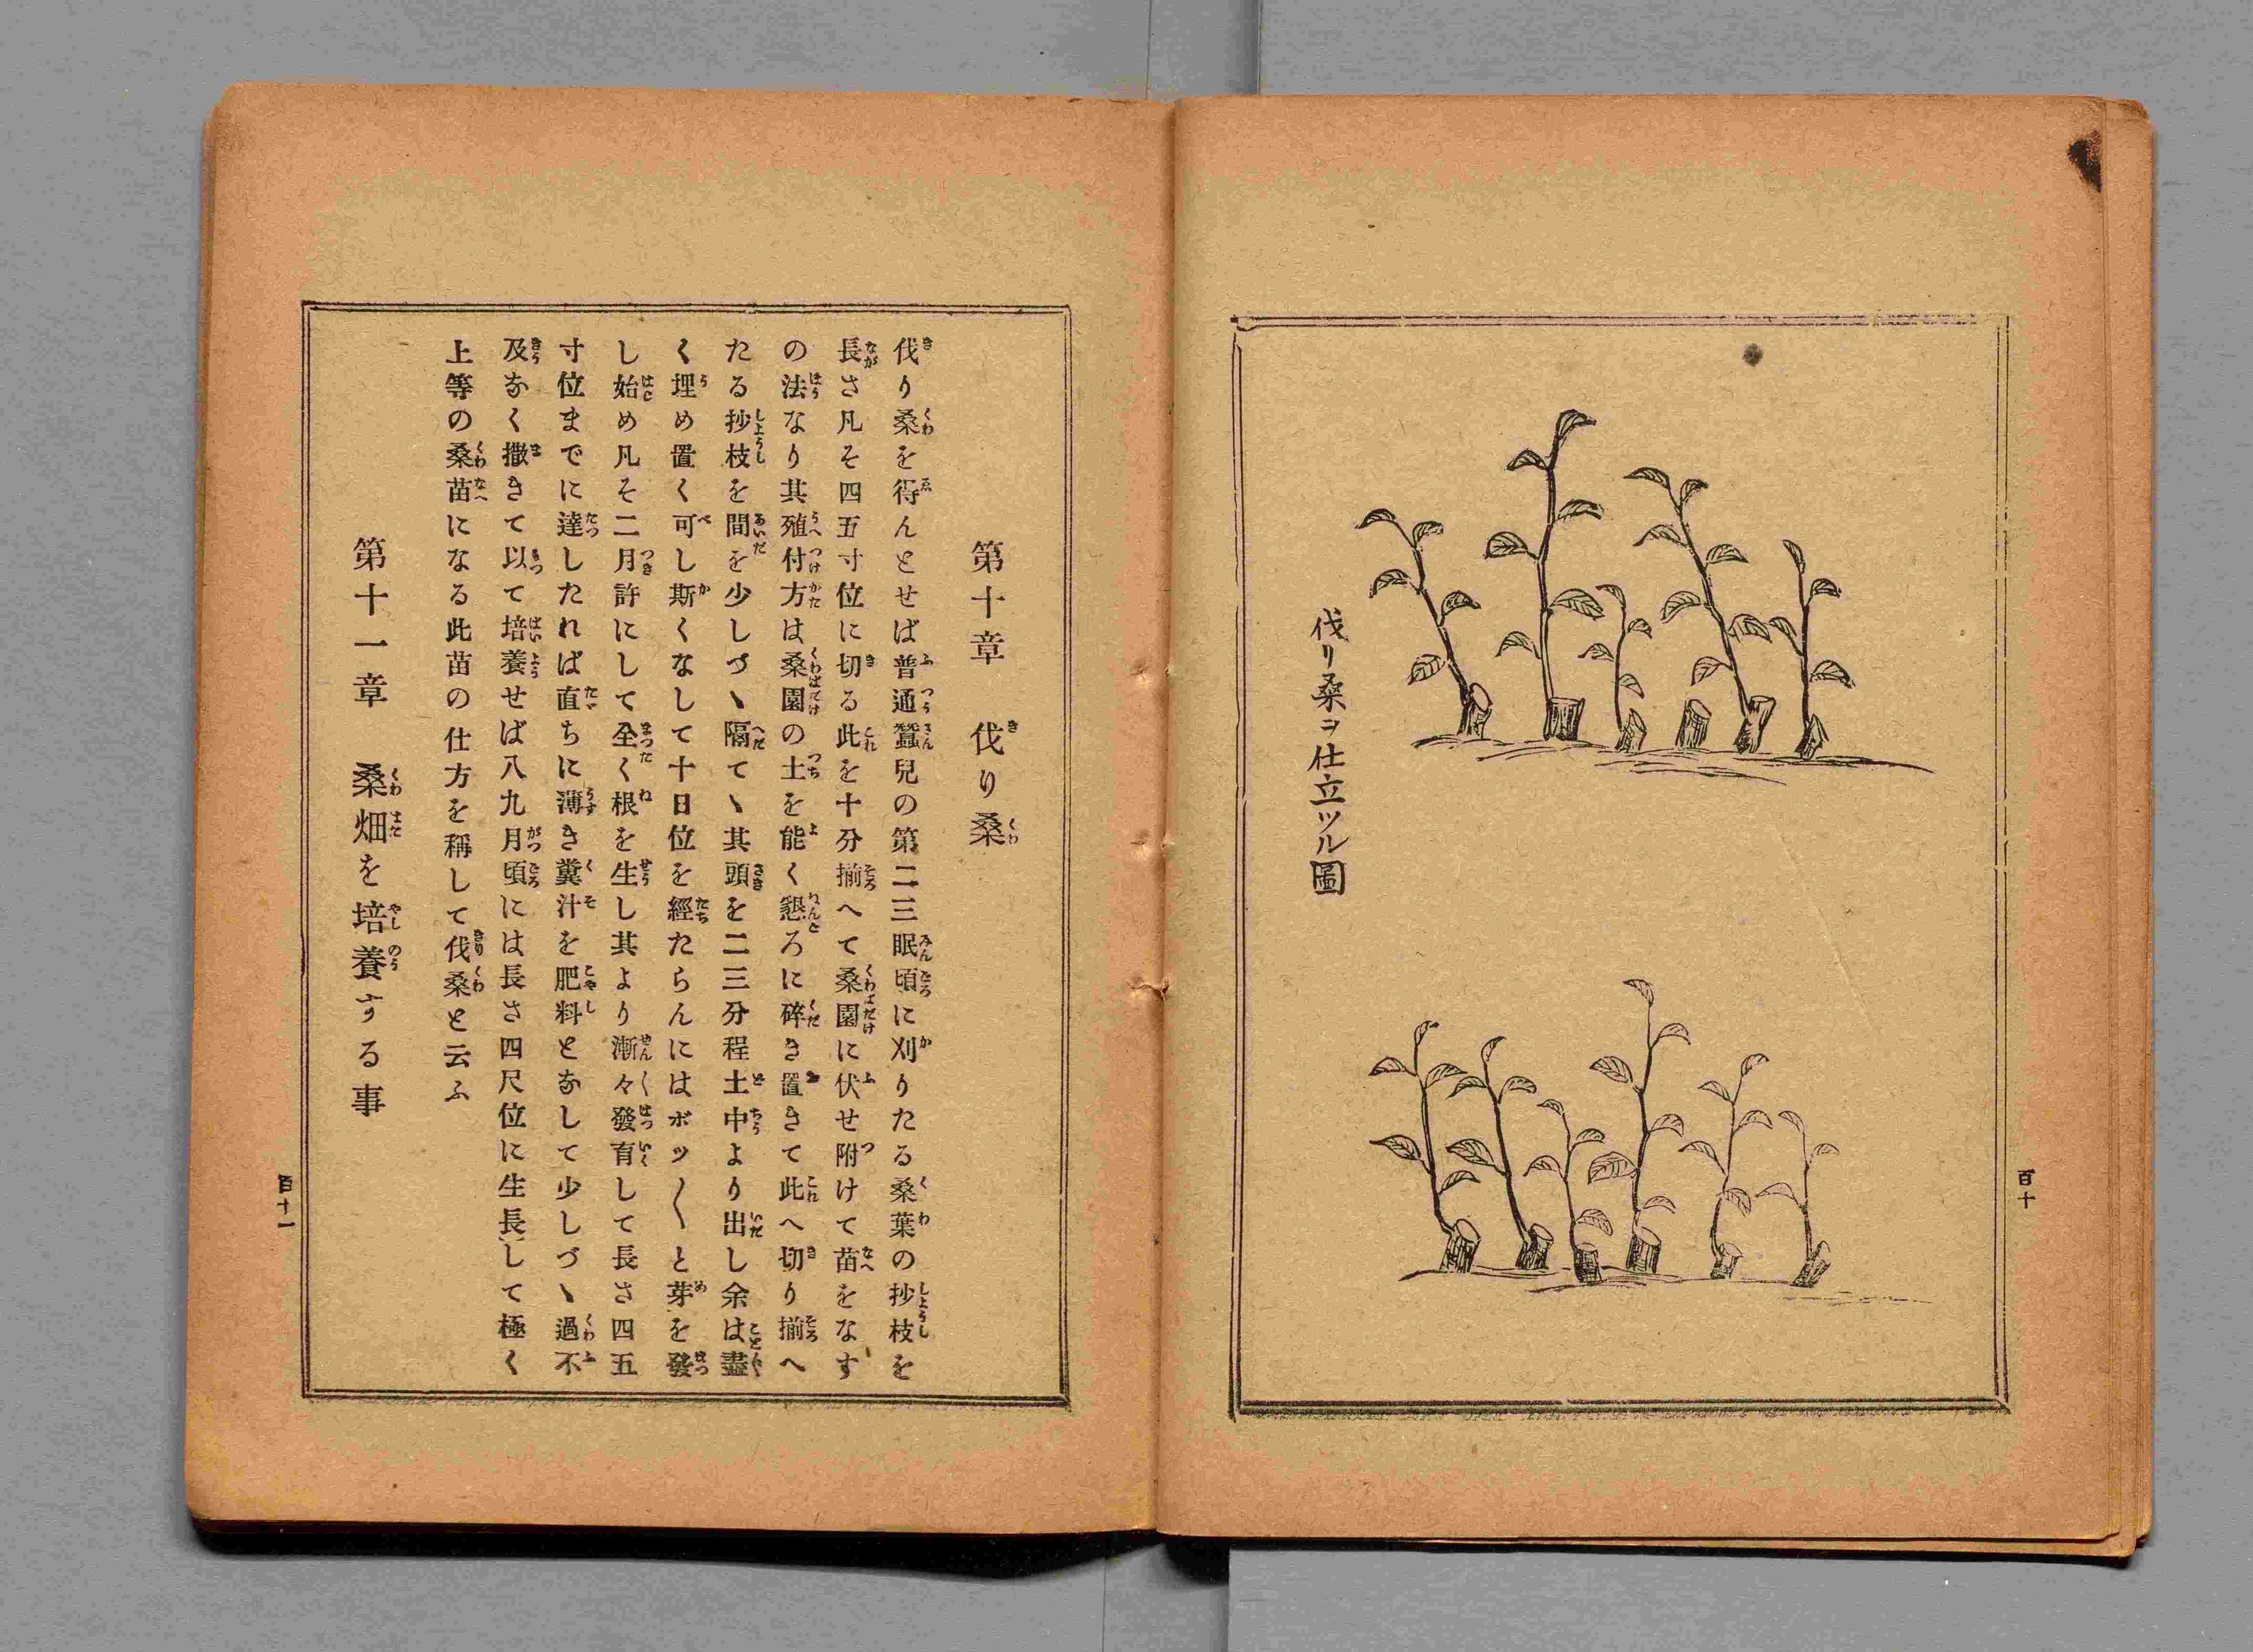 百十
伐リ桑ヲ仕立ツル圖
第十章　伐り桑
伐り桑を得んとせば普通蠶兒の第二三眠頃に刈りたる桑葉の抄枝を
長さ凡そ四五寸位に切る此を十分揃へて桑園に伏せ附けて苗をなす
の法なり其殖付方は桑園の土を能く懇ろに碎き置きて此へ切り揃へ
たる抄枝を間を少しづゝ隔てゝ其頭を二三分程土中より出し余は盡
く埋め置く可し斯くなして十日位を經たらんにはポツ〱と芽を發
し始め凡そ二月許にして全く根を生し其より漸々發育して長さ四五
寸位までに達したれば直ちに薄き糞汁を肥料となして少しづゝ過不
及なく撒きて以て培養せば八九月頃には長さ四尺位に生長して極く
上等の桑苗になる此苗の仕方を稱して伐桑と云ふ
第十一章　桑畑を培養する事
百十一